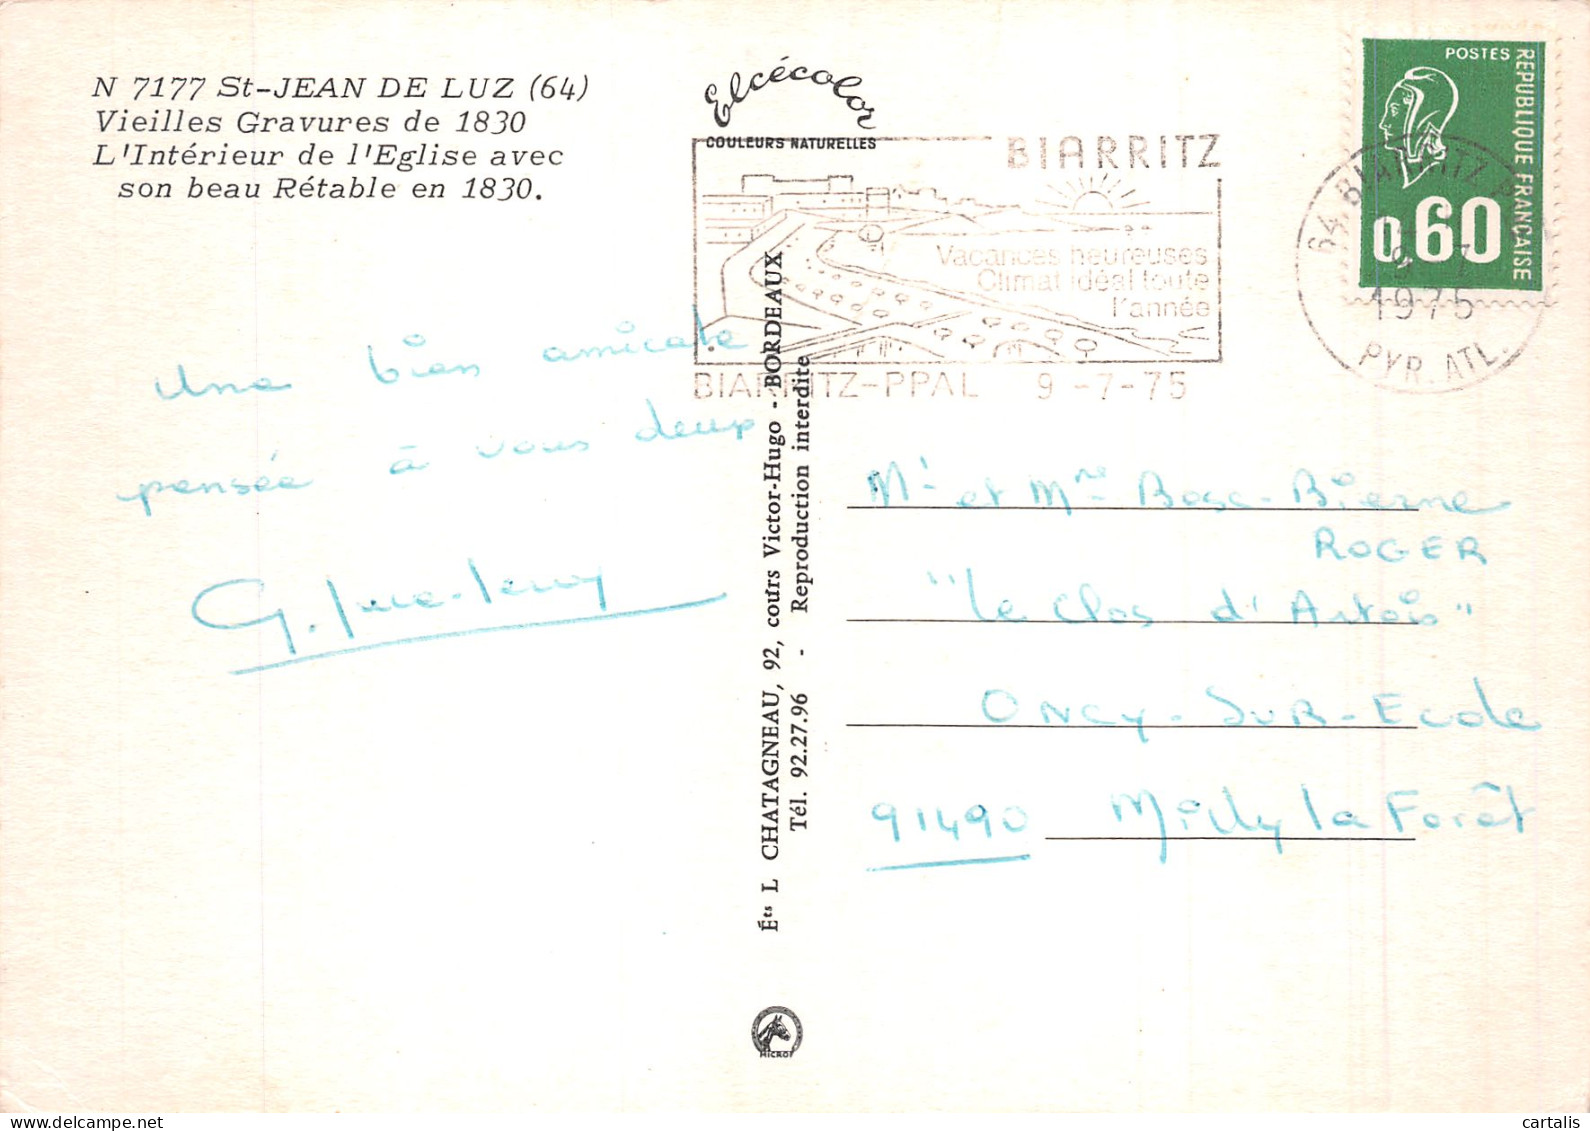 N 7177 St-JEAN DE LUZ (64)
Vieilles Gravures de 1830
L'Intérieur de l'Eglise avec
son beau Rétable en 1830.
Elcécolor
COULEURS NATURELLES
BIARRITZ
Vacances heureuses
Climat idéal toute
l'année
BIARRITZ-PPAL 9-7-75
POSTES
REPUBLIQUE FRANÇAISE
0,60
64 BIARRITZ
9-7
1975
PYR. ATL.
Une bien amicale
pensée à vous deux
G.
Éts L CHATAGNEAU, 92, cours Victor-Hugo - BORDEAUX
Tél. 92.27.96 - Reproduction interdite
Mr et Mme Bosc-Bierne
ROGER
"Le Clos d'Artois"
ONCY-SUR-Ecole
91490 Milly la Forêt
MICROT
cartalis
delcampe.net